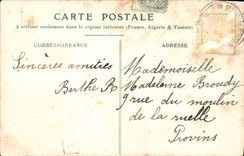 CARTE POSTALE
A utiliser seulement dans le régime intérieur (France, Algérie & Tunisie)
CORRESPONDANCE
ADRESSE
Sincères amitiés
Berthe R
Mademoiselle
Madeleine Broudy
9 rue du moulin
de la ruelle
Provins